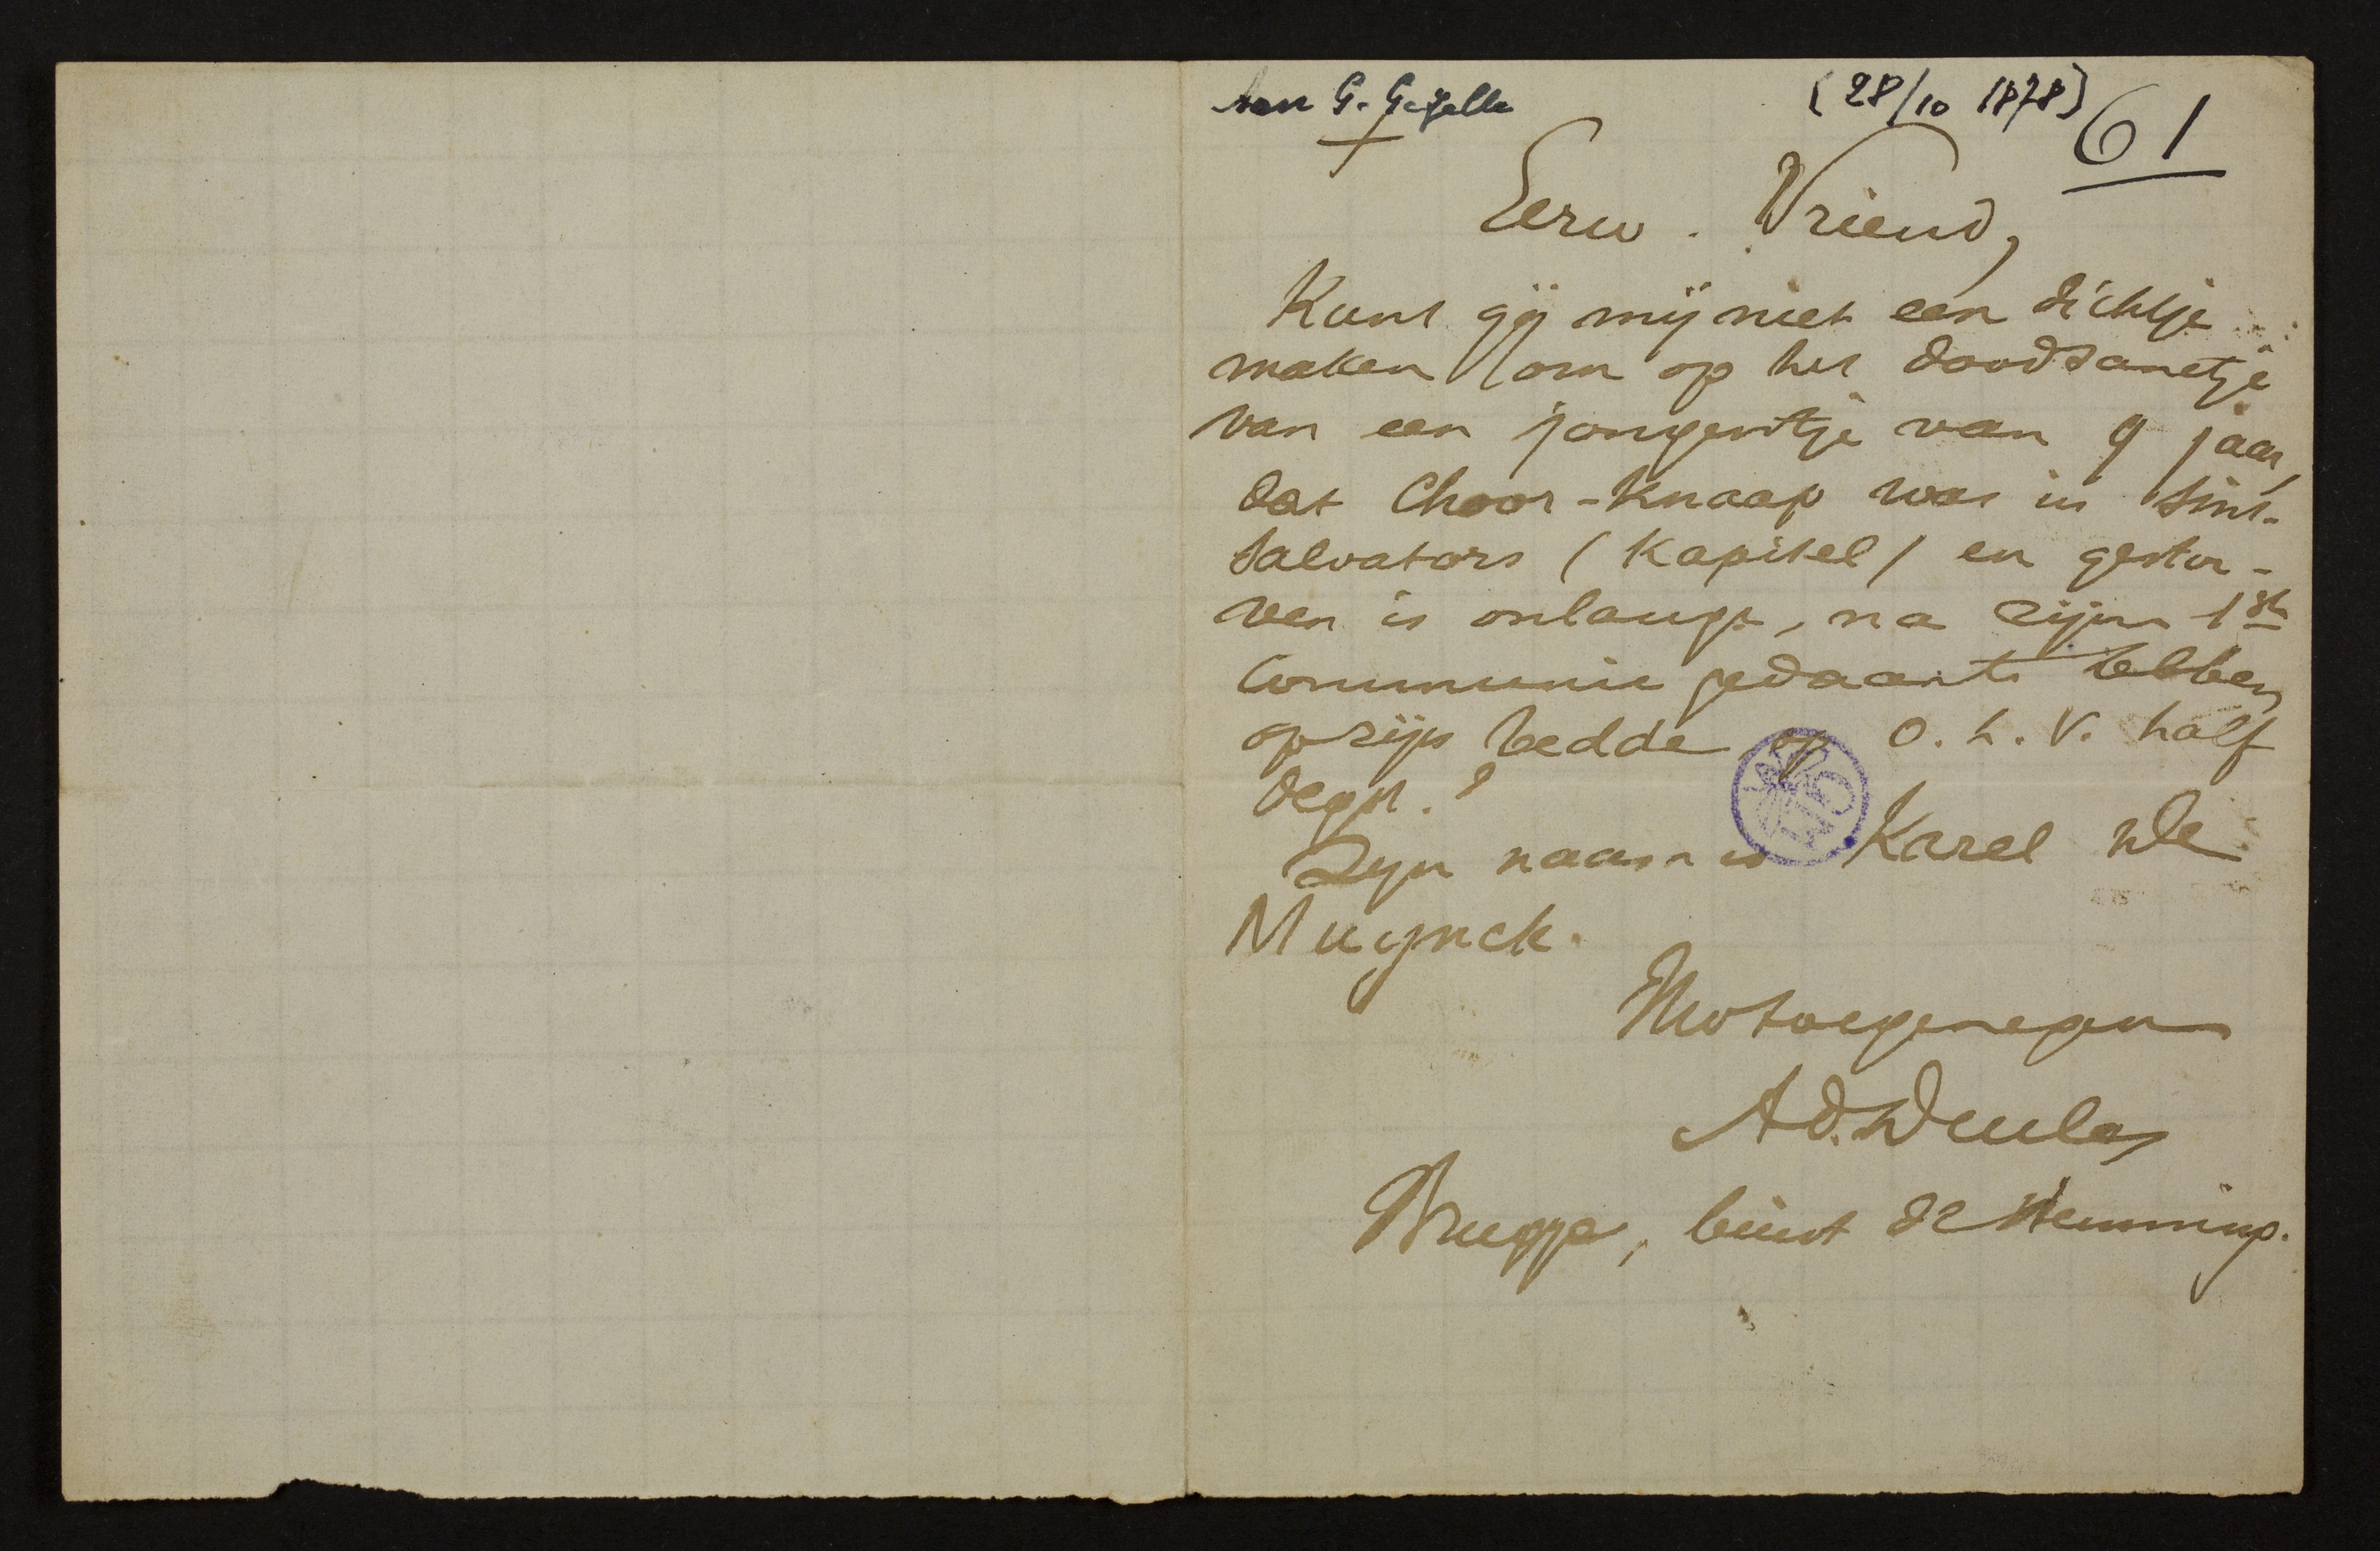 Aan G. Gezelle
(28/10 1878)
61
+
Eerw. Vriend,
Kunt gij mij niet een dichtje
maken om op het doodsanctje
van een jongentje van 9 jaar,
dat Choor-Knaap was in Sint-
Salvators (Kapitel) en gestor-
ven is onlangs, na zijn 1ste
Communie gedaan te hebben
op zijn bedde op O. L. V. half
Oegst.?
Zyn naam is Karel De
Muynck.
Uwtoegenegen
Ad. Duclos
Brugge, buist de Memming.